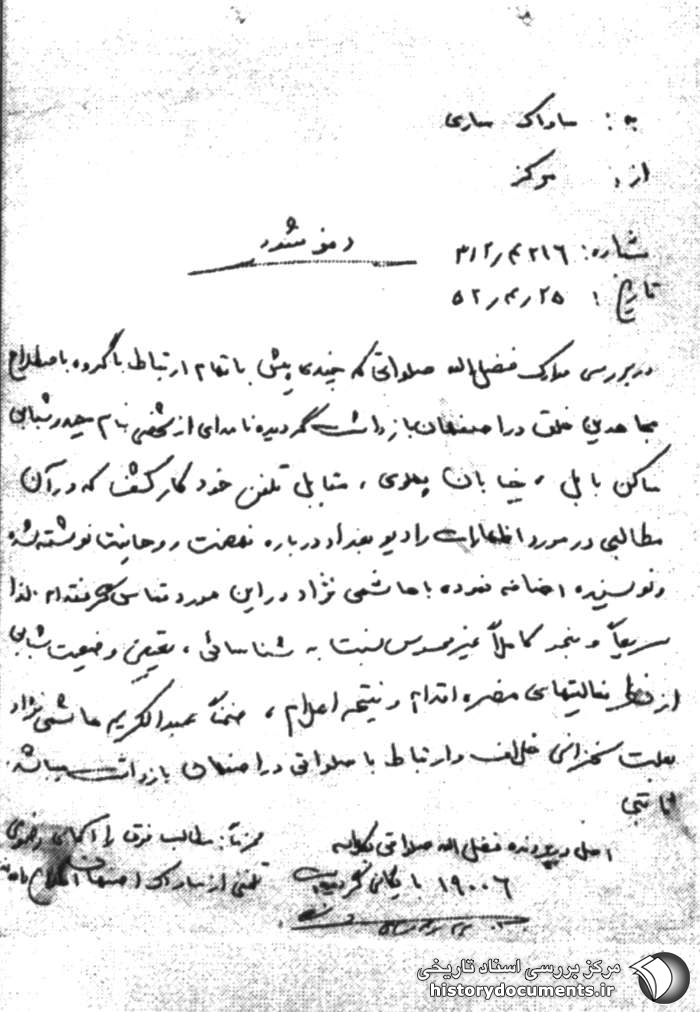 به : ساواک ساری
از : مرکز
شماره : ۳۱۲٫۴۲۱۶
رمز شود
تاریخ : ۵۲٫۴٫۲۵
در بررسی مدارک فضل‌اله صلواتی که چندی پیش باتهام ارتباط با گروه باصطلاح
مجاهدین خلق در اصفهان بازداشت گردیده نامه‌ای از شخصی بنام حیدر شبابی
ساکن بابل ، خیابان پهلوی ، مقابل تلفن خودکار کشف که در آن
مطالبی در مورد اظهارات رادیو بغداد درباره نهضت روحانیت نوشته شده
و نویسنده اضافه نموده با هاشمی نژاد در این مورد تماس گرفته‌ام . لذا
سریعاً و بنحو کاملاً غیرمحسوس نسبت به شناسائی ، تعیین وضعیت شبابی
از نظر فعالیتهای مضره اقدام و نتیجه اعلام ، ضمناً عبدالکریم هاشمی نژاد
بعلت سخنرانی خلاف و ارتباط با صلواتی در اصفهان بازداشت میباشد .
ثابتی
اصل در پرونده فضل‌اله صلواتی بکلاسه
۱۹۰۰۶ بایگانی گردید
مطالب فوق را آقای رضوی
تلفنی از ساواک اصفهان اطلاع
مرکز بررسی اسناد تاریخی
historydocuments.ir